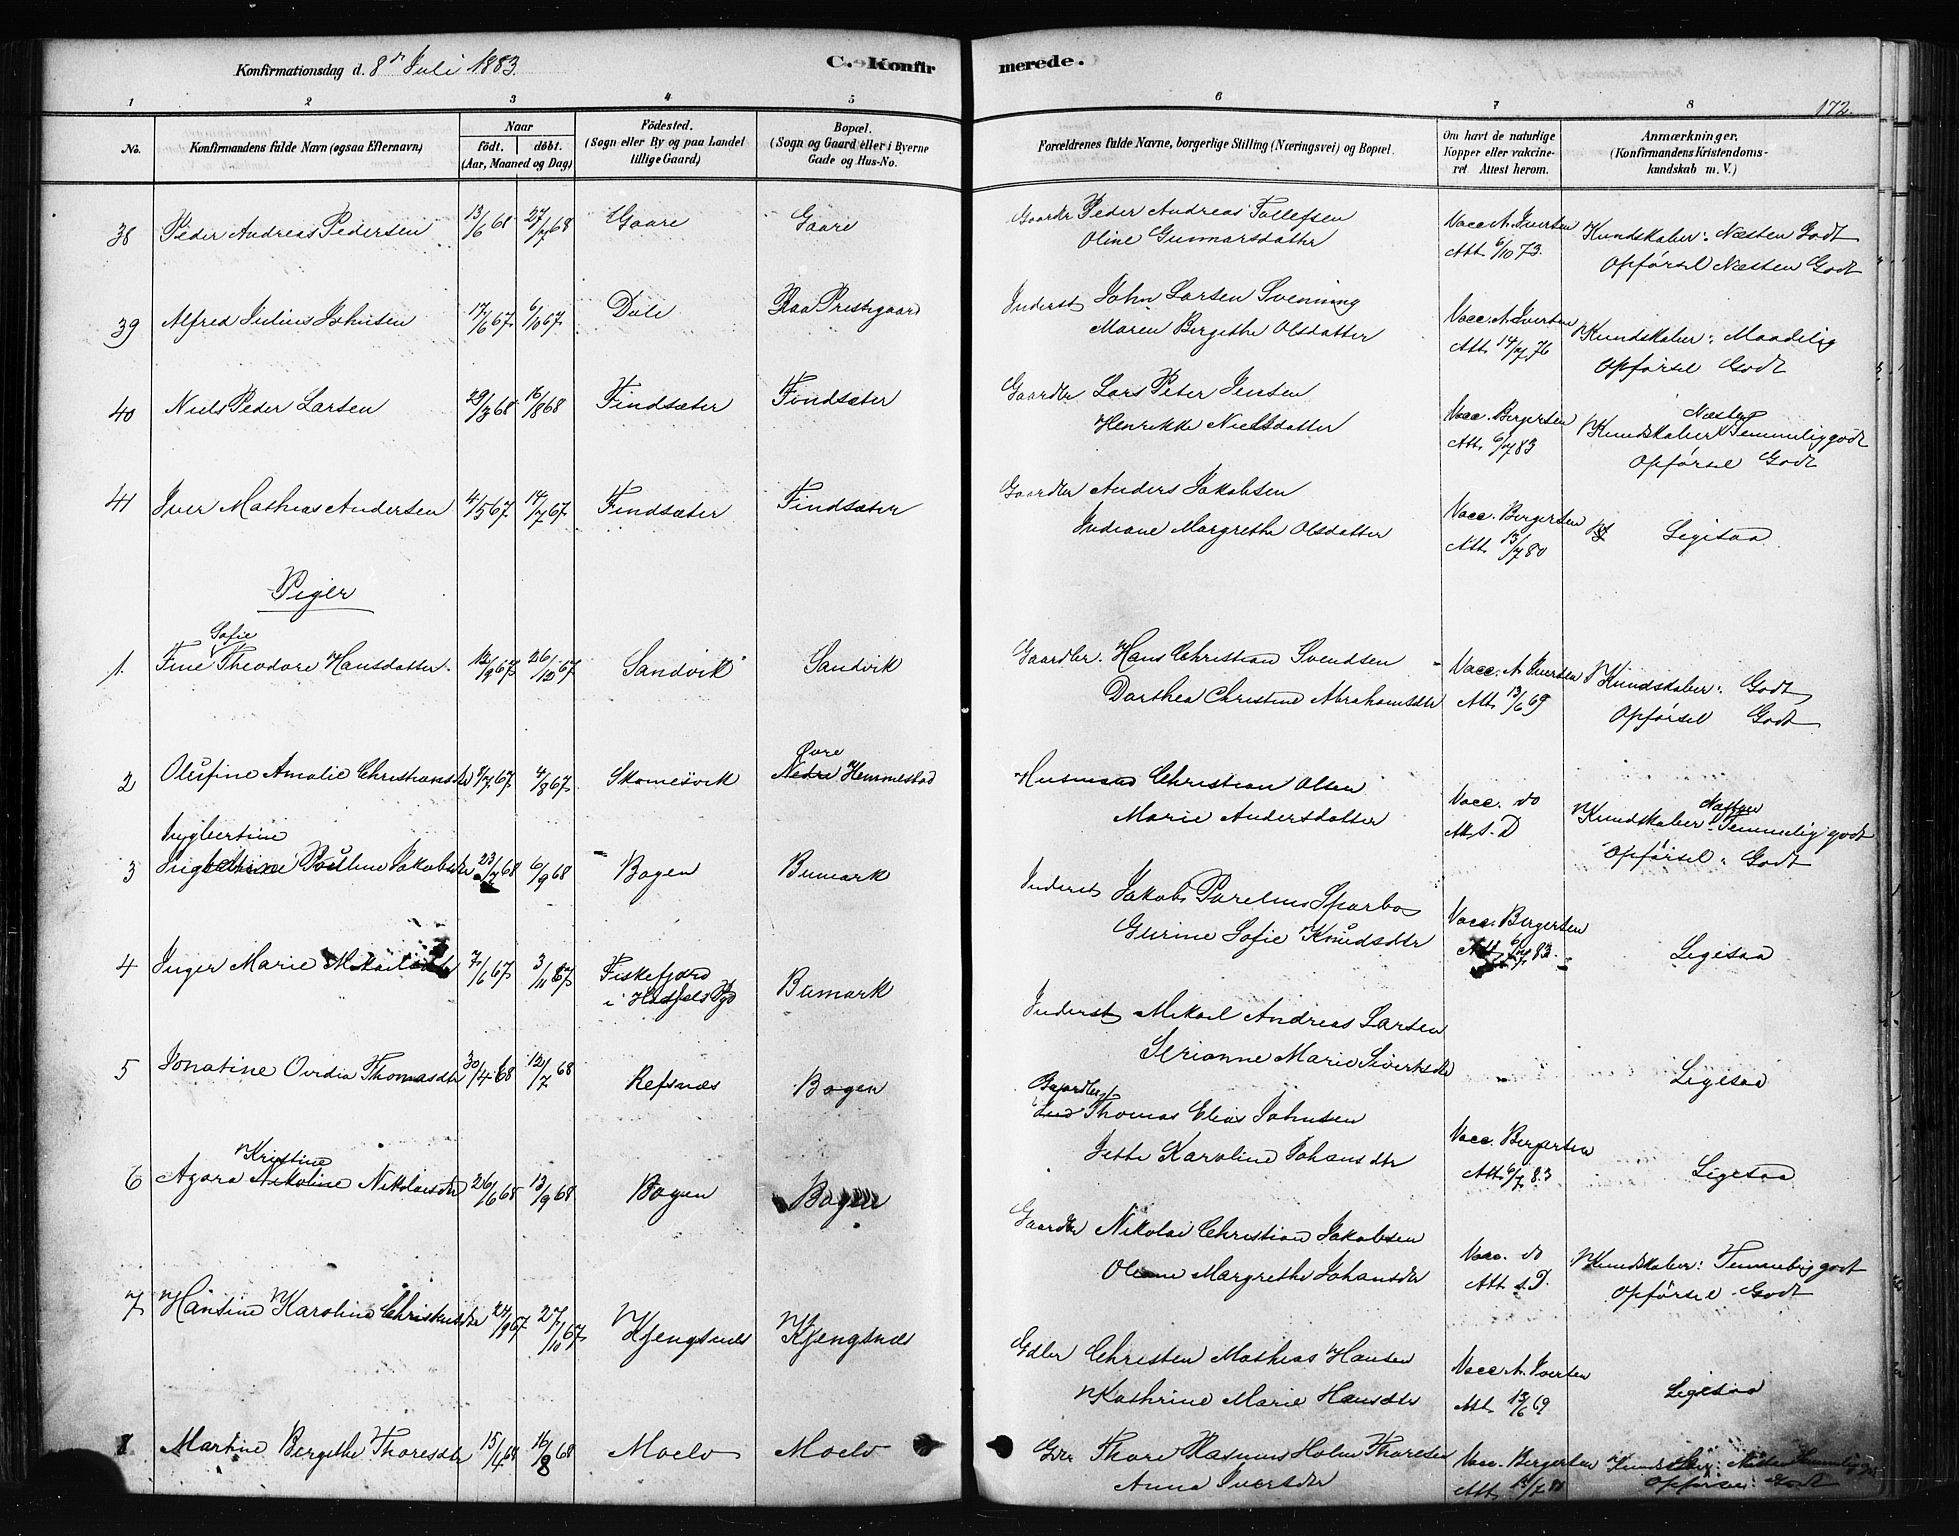 Konfirmationsdag d. 8de Juli 1883.
C. Konfir
merede.
172.
1 2 3 4 5 6 7 8
No.
Konfirmandens fulde Navn (ogsaa Efternavn)
Naar
födt. döbt.
(Aar, Maaned og Dag)
Födested.
(Sogn eller By og paa Landet
tillige Gaard)
Bopæl.
(Sogn og Gaard eller i Byerne
Gade og Hus-No.
Forældrenes fulde Navne, borgerlige Stilling (Næringsvei) og Bopæl.
Om havt de naturlige
Kopper eller vakcine-
ret Attest herom.
Anmærkninger.
(Konfirmandens Kristendoms-
kundskab m. V.)
38 Peder Andreas Pedersen 13/6 68 27/7 68 Gaare Gaare Gaardbr Peder Andreas Tollefsen Vacc. A. Ivertsen Kundskaber: Næsten Godt
Oline Gunnarsdatter Att. 6/10 73. Opførsel Næsten Godt
39 Alfred Julius Johnsen 17/6 67 6/10 67 Dale Præstegaard Inderst John Larsen Svenning Vacc. A. Ivertsen Kundskaber: Maadelig
Maren Bergithe Olsdatter Att. 14/7 76 Opførsel Godt
40 Niels Peder Larsen 29/3 68 16/8 68 Findsæter Findsæter Gaardbr Lars Peter Jensen Vacc. Bergersen Næsten
Henrikke Nielsdatter Att. 6/7 83 Kundskaber Temmelig godt
Opførsel Godt
41 Iver Mathias Andersen 4/5 67 14/7 67 Findsæter Findsæter Gaardbr Anders Jakobsen Vacc. Bergersen Ligesaa
Indiane Margrethe Olsdatter Att. 13/7 80
Piger
Sofie
1. Fine Theodore Hansdatter 12/9 67 26/12 67 Sandvik Sandvik Gaardbr. Hans Christian Svendsen Vacc. A. Ivertsen Kundskaber: Godt
Dorthea Christine Abrahamsdtr Att. 13/6 69 Opførsel Godt
Øvre
2 Olufine Amalie Christiansdtr 7/7 67 4/8 67 Skomesvik Nedre Hemmestad Husmand Christian Olsen Vacc. do Næsten
Marie Andersdatter Att. s. D Kundskaber Temmelig godt
Opførsel: Godt
3 Pauline Jakobsdtr 23/7 68 6/9 68 Bogen Bumark Inderst Jakob Parelius Sparbo Vacc. Bergersen Ligesaa
Gurine Sofie Knudsdtr Att. 6/7 83.
4 Inger Marie Mikailsdtr 7/6 67 3/11 67 Fiskefjord Bumark Inderst Mikail Andreas Larsen Ligesaa
i Hadsels Pgd Marie Sivertsdtr
5 Jonatine Ovidia Thomasdtr 30/4 68 12/7 68 Refsnæs Bogen Gaardbr
Ind Thomas Elias Johnsen Vacc. Bergersen Ligesaa
Jette Karoline Johansdtr Att. 6/7 83
Kristine
6 Agara Nikoline Nikolaisdtr 26/6 68 13/9 68 Bogen Bogen Gaardbr Nikolai Christian Jakobsen Vacc. do Kundskaber: Temmelig godt
Margrethe Johansdtr Att. s. D. Opførsel Godt
7 Hansine Karoline Christensdtr 24/9 67 27/10 67 Kjengsnes Kjengsnes Gdbr Christen Mathias Hansen Vacc. A. Ivertsen Ligesaa
Kathrine Marie Hansdtr Att. 13/6 69
8 Martine Bergithe Thoresdtr 15/4 68 16/8 68 Moelv Moelv Gbr Thore Rasmus Holm Thoresen Vacc. Bergersen Kundskaber: Næsten Temmelig
Anna Iversdtr Att. Opførsel: Godt